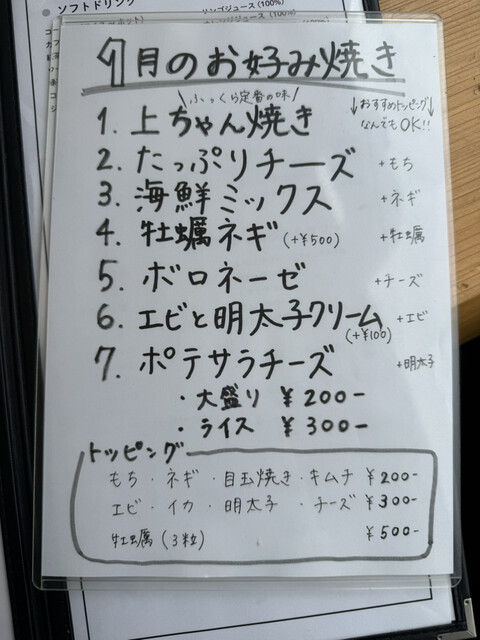 ソフトドリンク
リンゴジュース (100%)
9月のお好み焼き
＼ふっくら定番の味／
↓おすすめトッピング↓
なんでもOK!!
1. 上ちゃん焼き
2. たっぷりチーズ +もち
3. 海鮮ミックス +ネギ
4. 牡蠣ネギ(+¥500) +牡蠣
5. ボロネーゼ +チーズ
6. エビと明太子クリーム +エビ
(+¥100)
7. ポテサラチーズ +明太子
・大盛り ¥200-
・ライス ¥300-
トッピング
もち・ネギ・目玉焼き・キムチ ¥200-
エビ・イカ・明太子・チーズ ¥300-
牡蠣(3粒) ¥500-